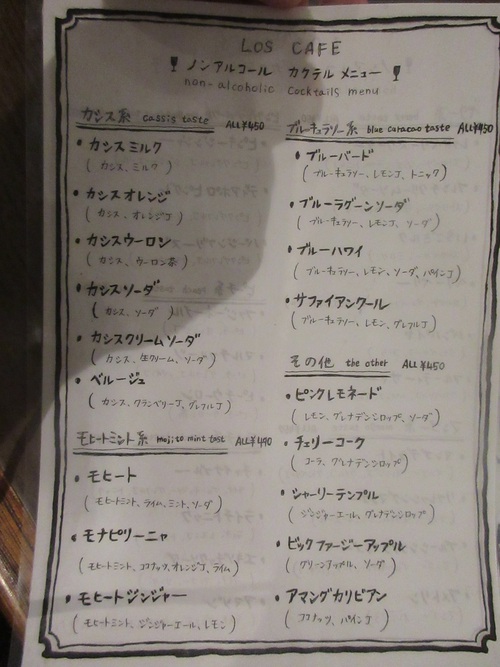 LOS CAFE
ノンアルコール カクテル メニュー
non-alcoholic cocktails menu
カシス系 cassis taste ALL¥450
・カシスミルク
(カシス、ミルク)
・カシスオレンジ
(カシス、オレンジJ)
・カシスウーロン
(カシス、ウーロン茶)
・カシスソーダ
(カシス、ソーダ)
・カシスクリームソーダ
(カシス、生クリーム、ソーダ)
・ベルージュ
(カシス、クランベリーJ、グレフルJ)
モヒートミント系 mojito mint tast ALL¥490
・モヒート
(モヒートミント、ライム、ミント、ソーダ)
・モナピリーニャ
(モヒートミント、ココナッツ、オレンジJ、ライム)
・モヒートジンジャー
(モヒートミント、ジンジャーエール、レモン)
ブルーキュラソー系 blue curacao taste ALL¥450
・ブルーバード
(ブルーキュラソー、レモンJ、トニック)
・ブルーラグーンソーダ
(ブルーキュラソー、レモンJ、ソーダ)
・ブルーハワイ
(ブルーキュラソー、レモン、ソーダ、パインJ)
・サファイアンクール
(ブルーキュラソー、レモン、グレフルJ)
その他 the other ALL¥450
・ピンクレモネード
(レモン、グレナデンシロップ、ソーダ)
・チェリーコーク
(コーラ、グレナデンシロップ)
・シャーリーテンプル
(ジンジャーエール、グレナデンシロップ)
・ビックファージーアップル
(グリーンアップル、ソーダ)
・アマングカリビアン
(ココナッツ、パインJ)